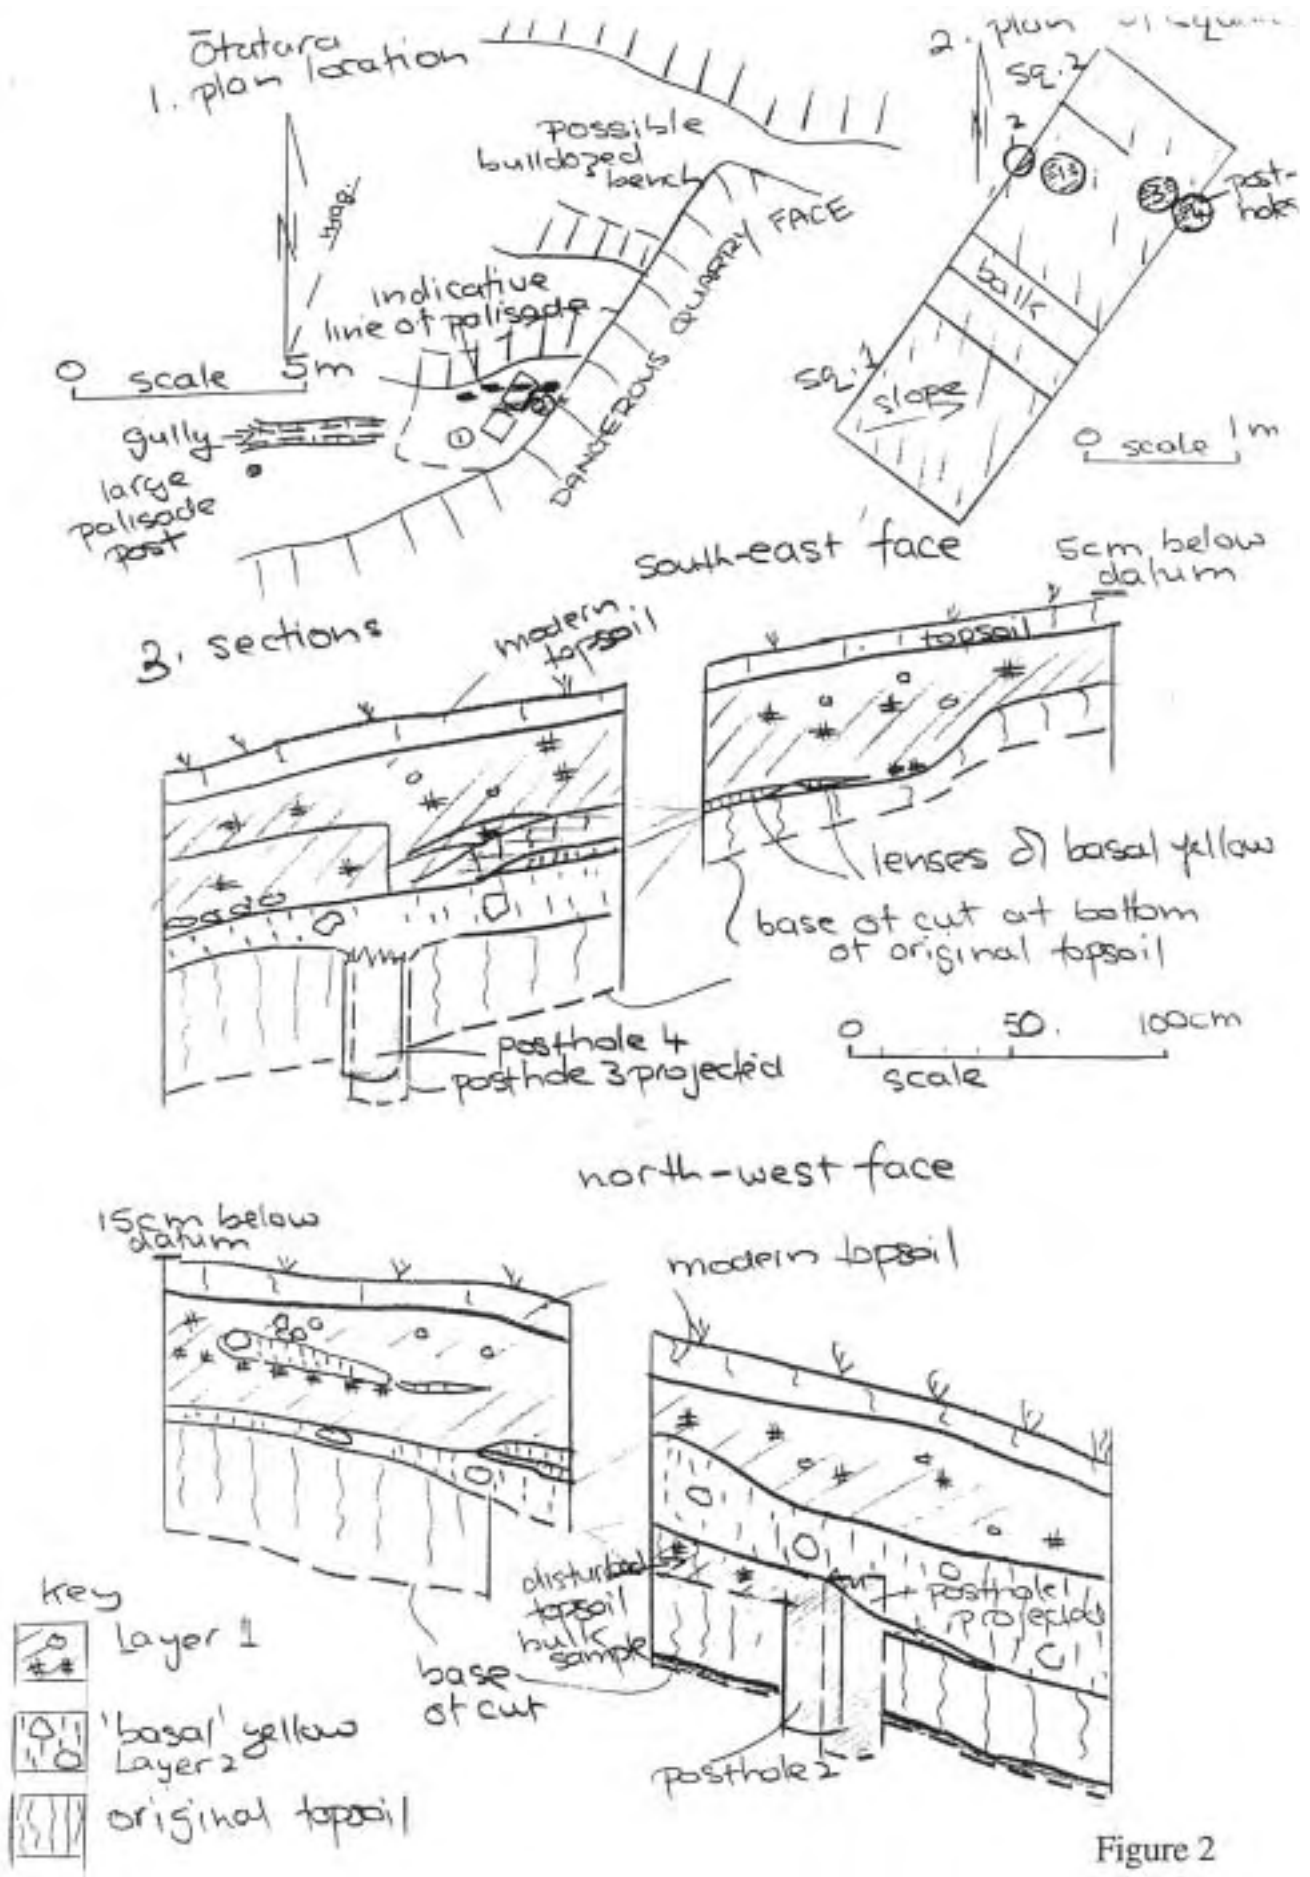 Ōtatara
1. plan location
Mag.
possible
bulldozed
bench
DANGEROUS QUARRY FACE
indicative
line of palisade
0 scale 5m
gully
1
large
palisade
post
2. plan of squares
sq. 2
2
1
3
4
post-
holes
balk
sq. 1
slope
0 scale 1m
3. sections
south-east face
5cm below
datum
modern
topsoil
topsoil
lenses of basal yellow
base of cut at bottom
of original topsoil
posthole 4
posthole 3 projected
0 50. 100cm
scale
north-west face
15cm below
datum
modern topsoil
disturbed
topsoil
bulk
sample
posthole 1
projected
base
of cut
posthole 2
key
Layer 1
'basal' yellow
Layer 2
original topsoil
Figure 2